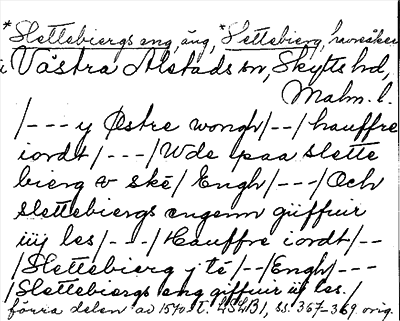 *Slettebiergs eng, äng, *Slettebierg, havreåker
i Västra Alstads sn, Skytts hd,
Malm. l.
/--- y Østre wongh/--/hauffre
iordt/---/Wde paa slette
bierg v skè/Engh/---/Och
slettebiergs engenn güffuir
iiij les/---/Hauffre iordt/--
/Slettebierg y té/--/Engh/---
/Slettebiergs eng giffuir iij les./
förra delen av 1570 t. 454B1, ss. 367-369. orig.